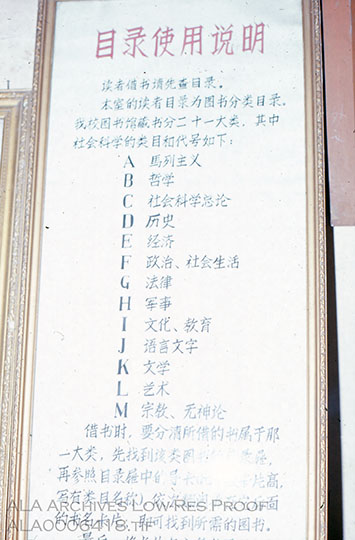 目录使用说明
读者借书请先查目录。
本室的读者目录为图书分类目录。
我校图书馆藏书分二十一大类,其中
社会科学的类目和代号如下:
A 馬列主义
B 哲学
C 社会科学总论
D 历史
E 经济
F 政治、社会生活
G 法律
H 军事
I 文化、教育
J 语言文字
K 文学
L 艺术
M 宗教、无神论
借书时,要分清所借的书属于那
一大类,先找到该类图书
再参照目录柜中的导
写有类目名称)
的书名卡片,即可找到所需的图书。
ALA Archives Low-Res Proof